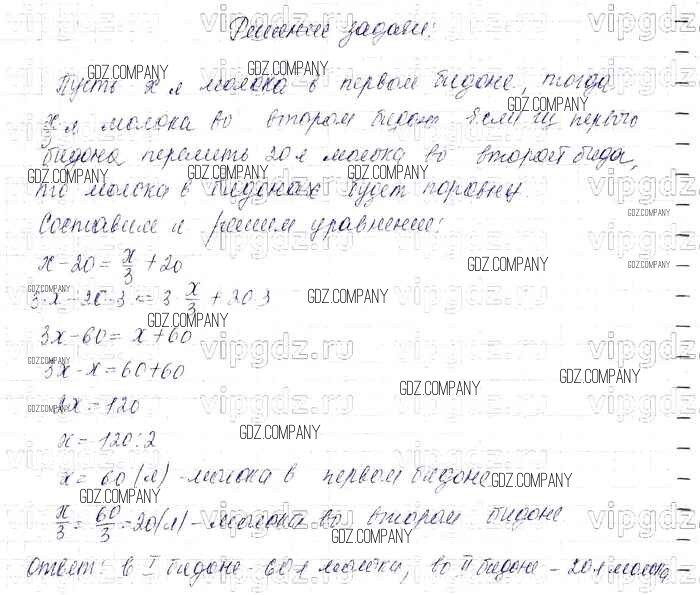 Решение задачи:
Пусть x л молока в первом бидоне, тогда
x/3 л молока во втором бидоне. Если из первого
бидона перелить 20 л молока во второй бидон,
то молока в бидонах будет поровну.
Составим и решим уравнение:
x - 20 = x/3 + 20
3·x - 20·3 = 3·x/3 + 20·3
3x - 60 = x + 60
3x - x = 60 + 60
2x = 120
x = 120 : 2
x = 60 (л) - молока в первом бидоне
x/3 = 60/3 = 20 (л) - молока во втором бидоне
Ответ: в I бидоне - 60 л молока, во II бидоне - 20 л молока
GDZ.COMPANY
vipgdz.ru